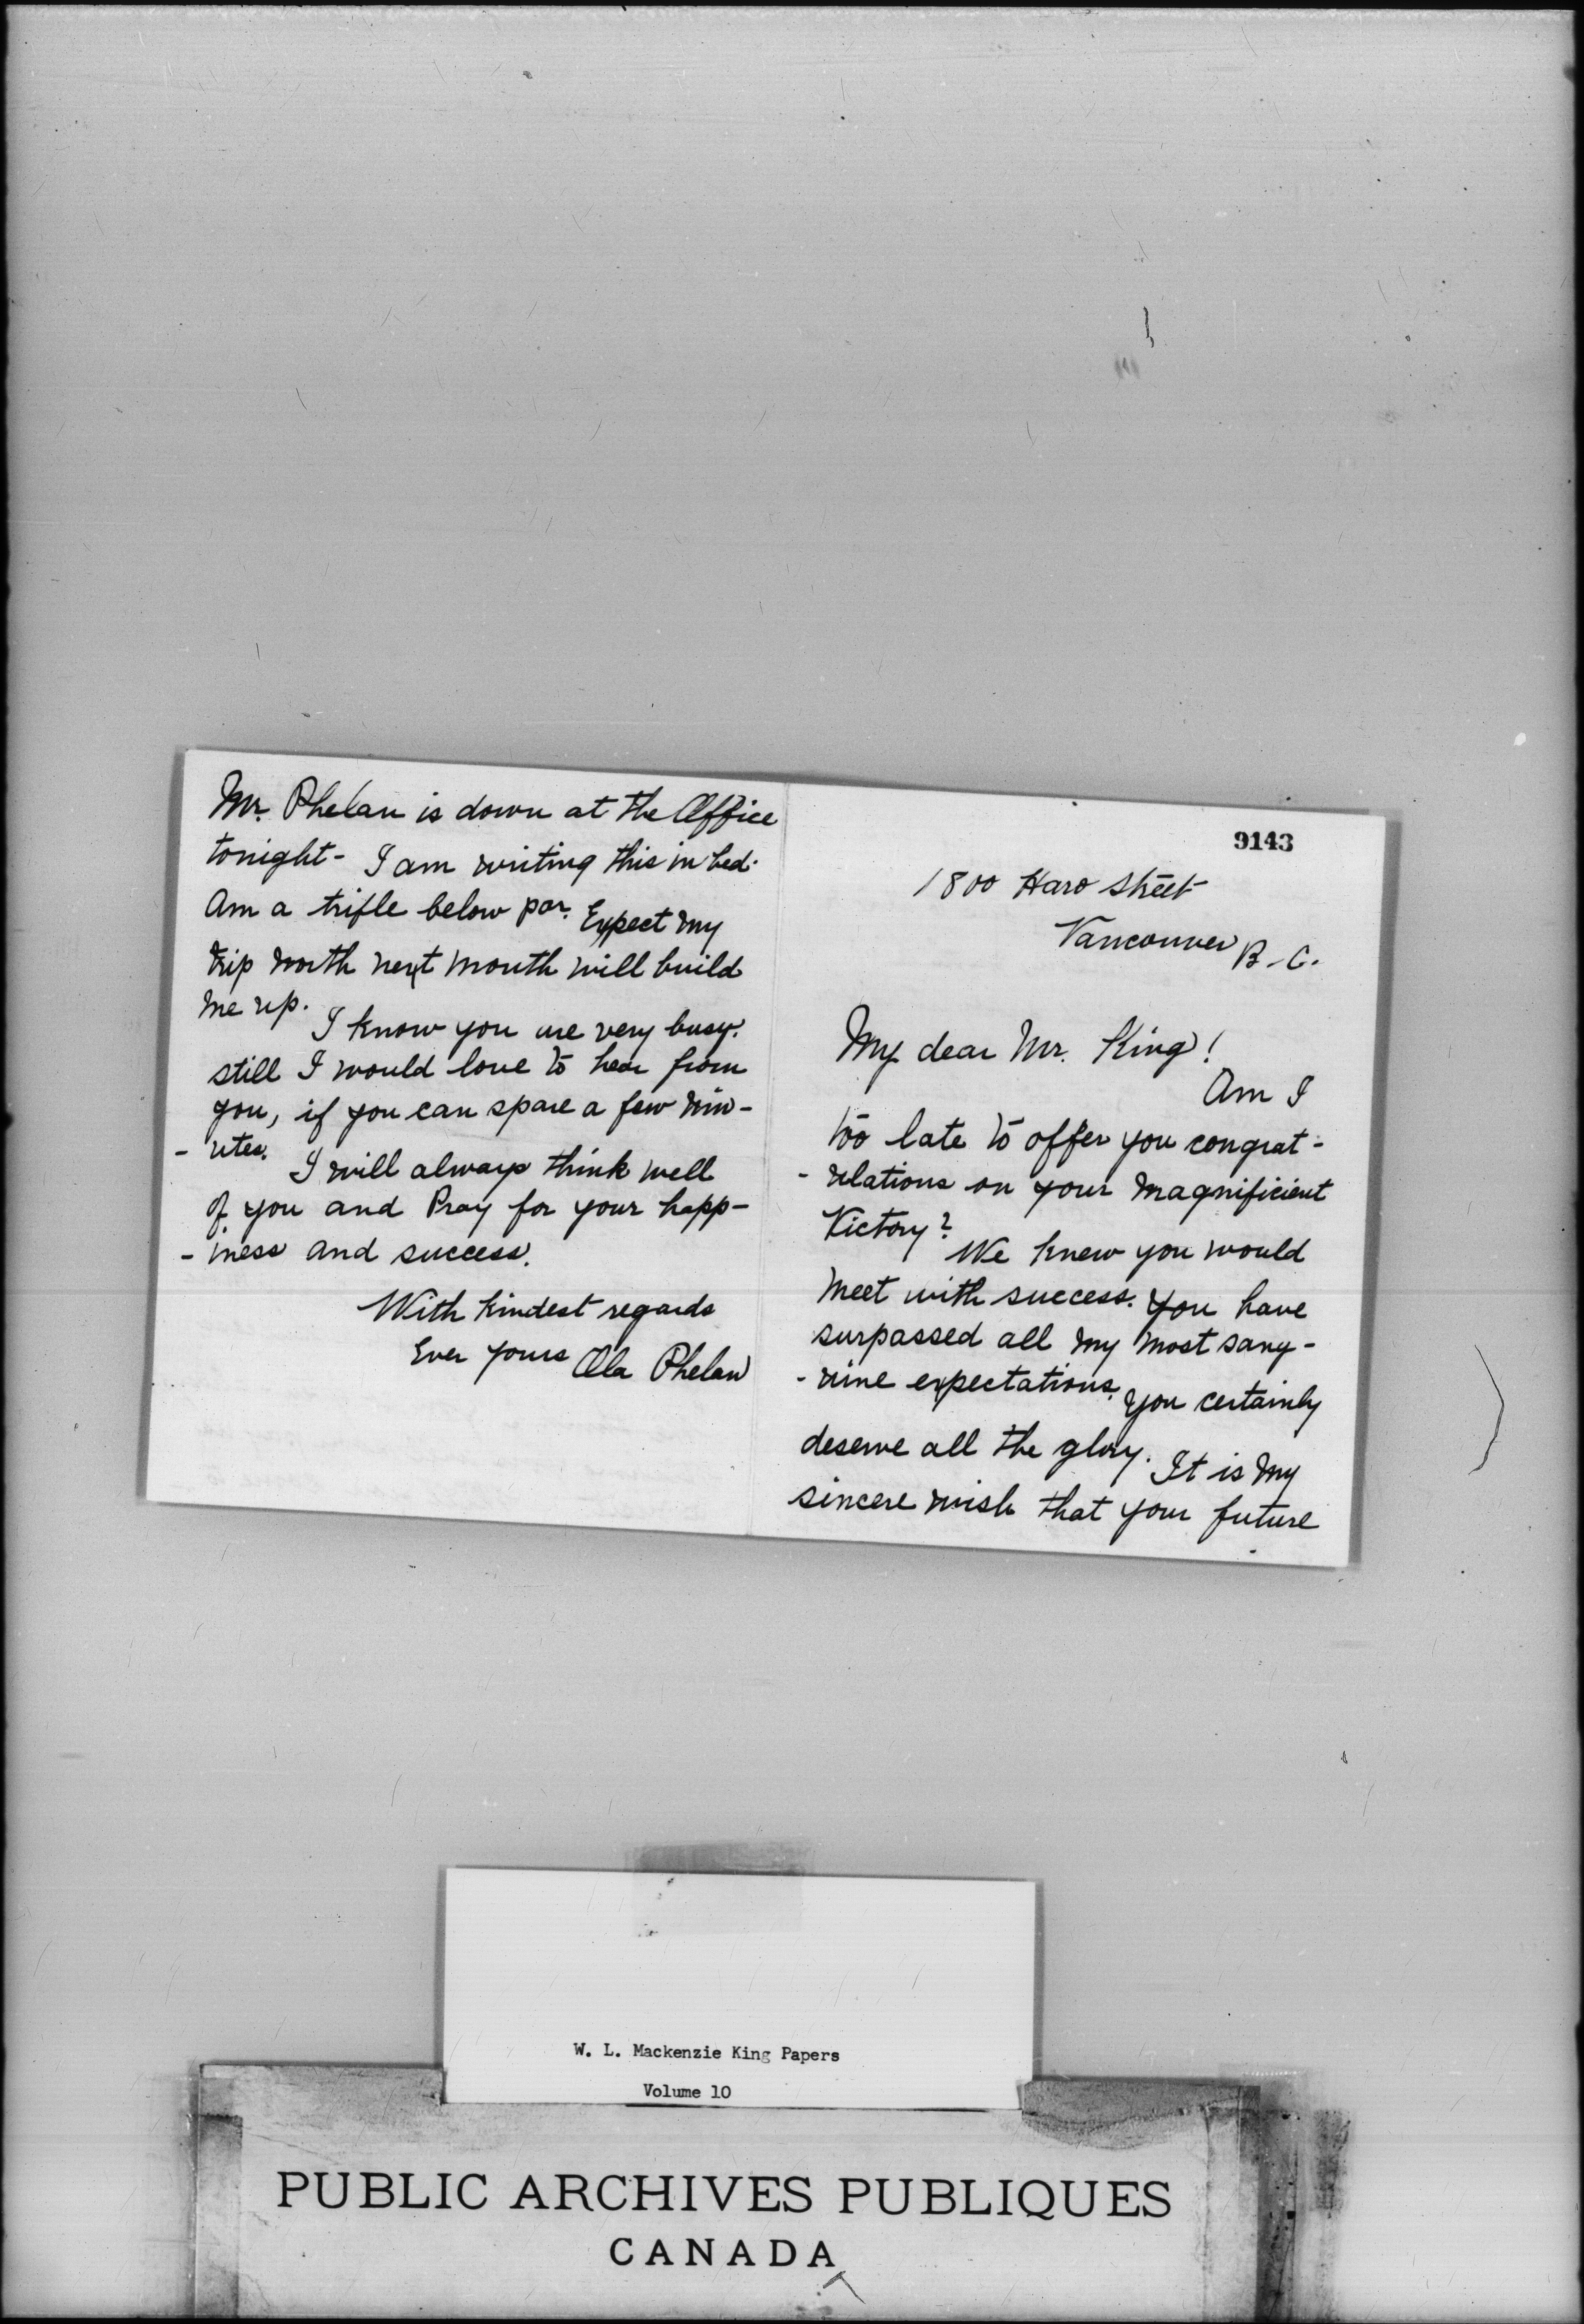 Mr. Phelan is down at the Office
tonight - I am writing this in bed.
Am a trifle below par. Expect my
trip north next month will build
me up.
I know you are very busy.
still I would love to hear from
you, if you can spare a few min-
- utes.
I will always think well
of you and Pray for your happ-
- iness and success.
With kindest regards
Ever yours Ola Phelan
9143
1800 Haro Street
Vancouver B.C.
My dear Mr. King!
Am I
too late to offer you congrat-
- ulations on your magnificient
Victory?
We knew you would
meet with success. You have
surpassed all my most sang-
- uine expectations. You certainly
deserve all the glory. It is my
sincere wish that your future
W. L. Mackenzie King Papers
Volume 10
PUBLIC ARCHIVES PUBLIQUES
CANADA